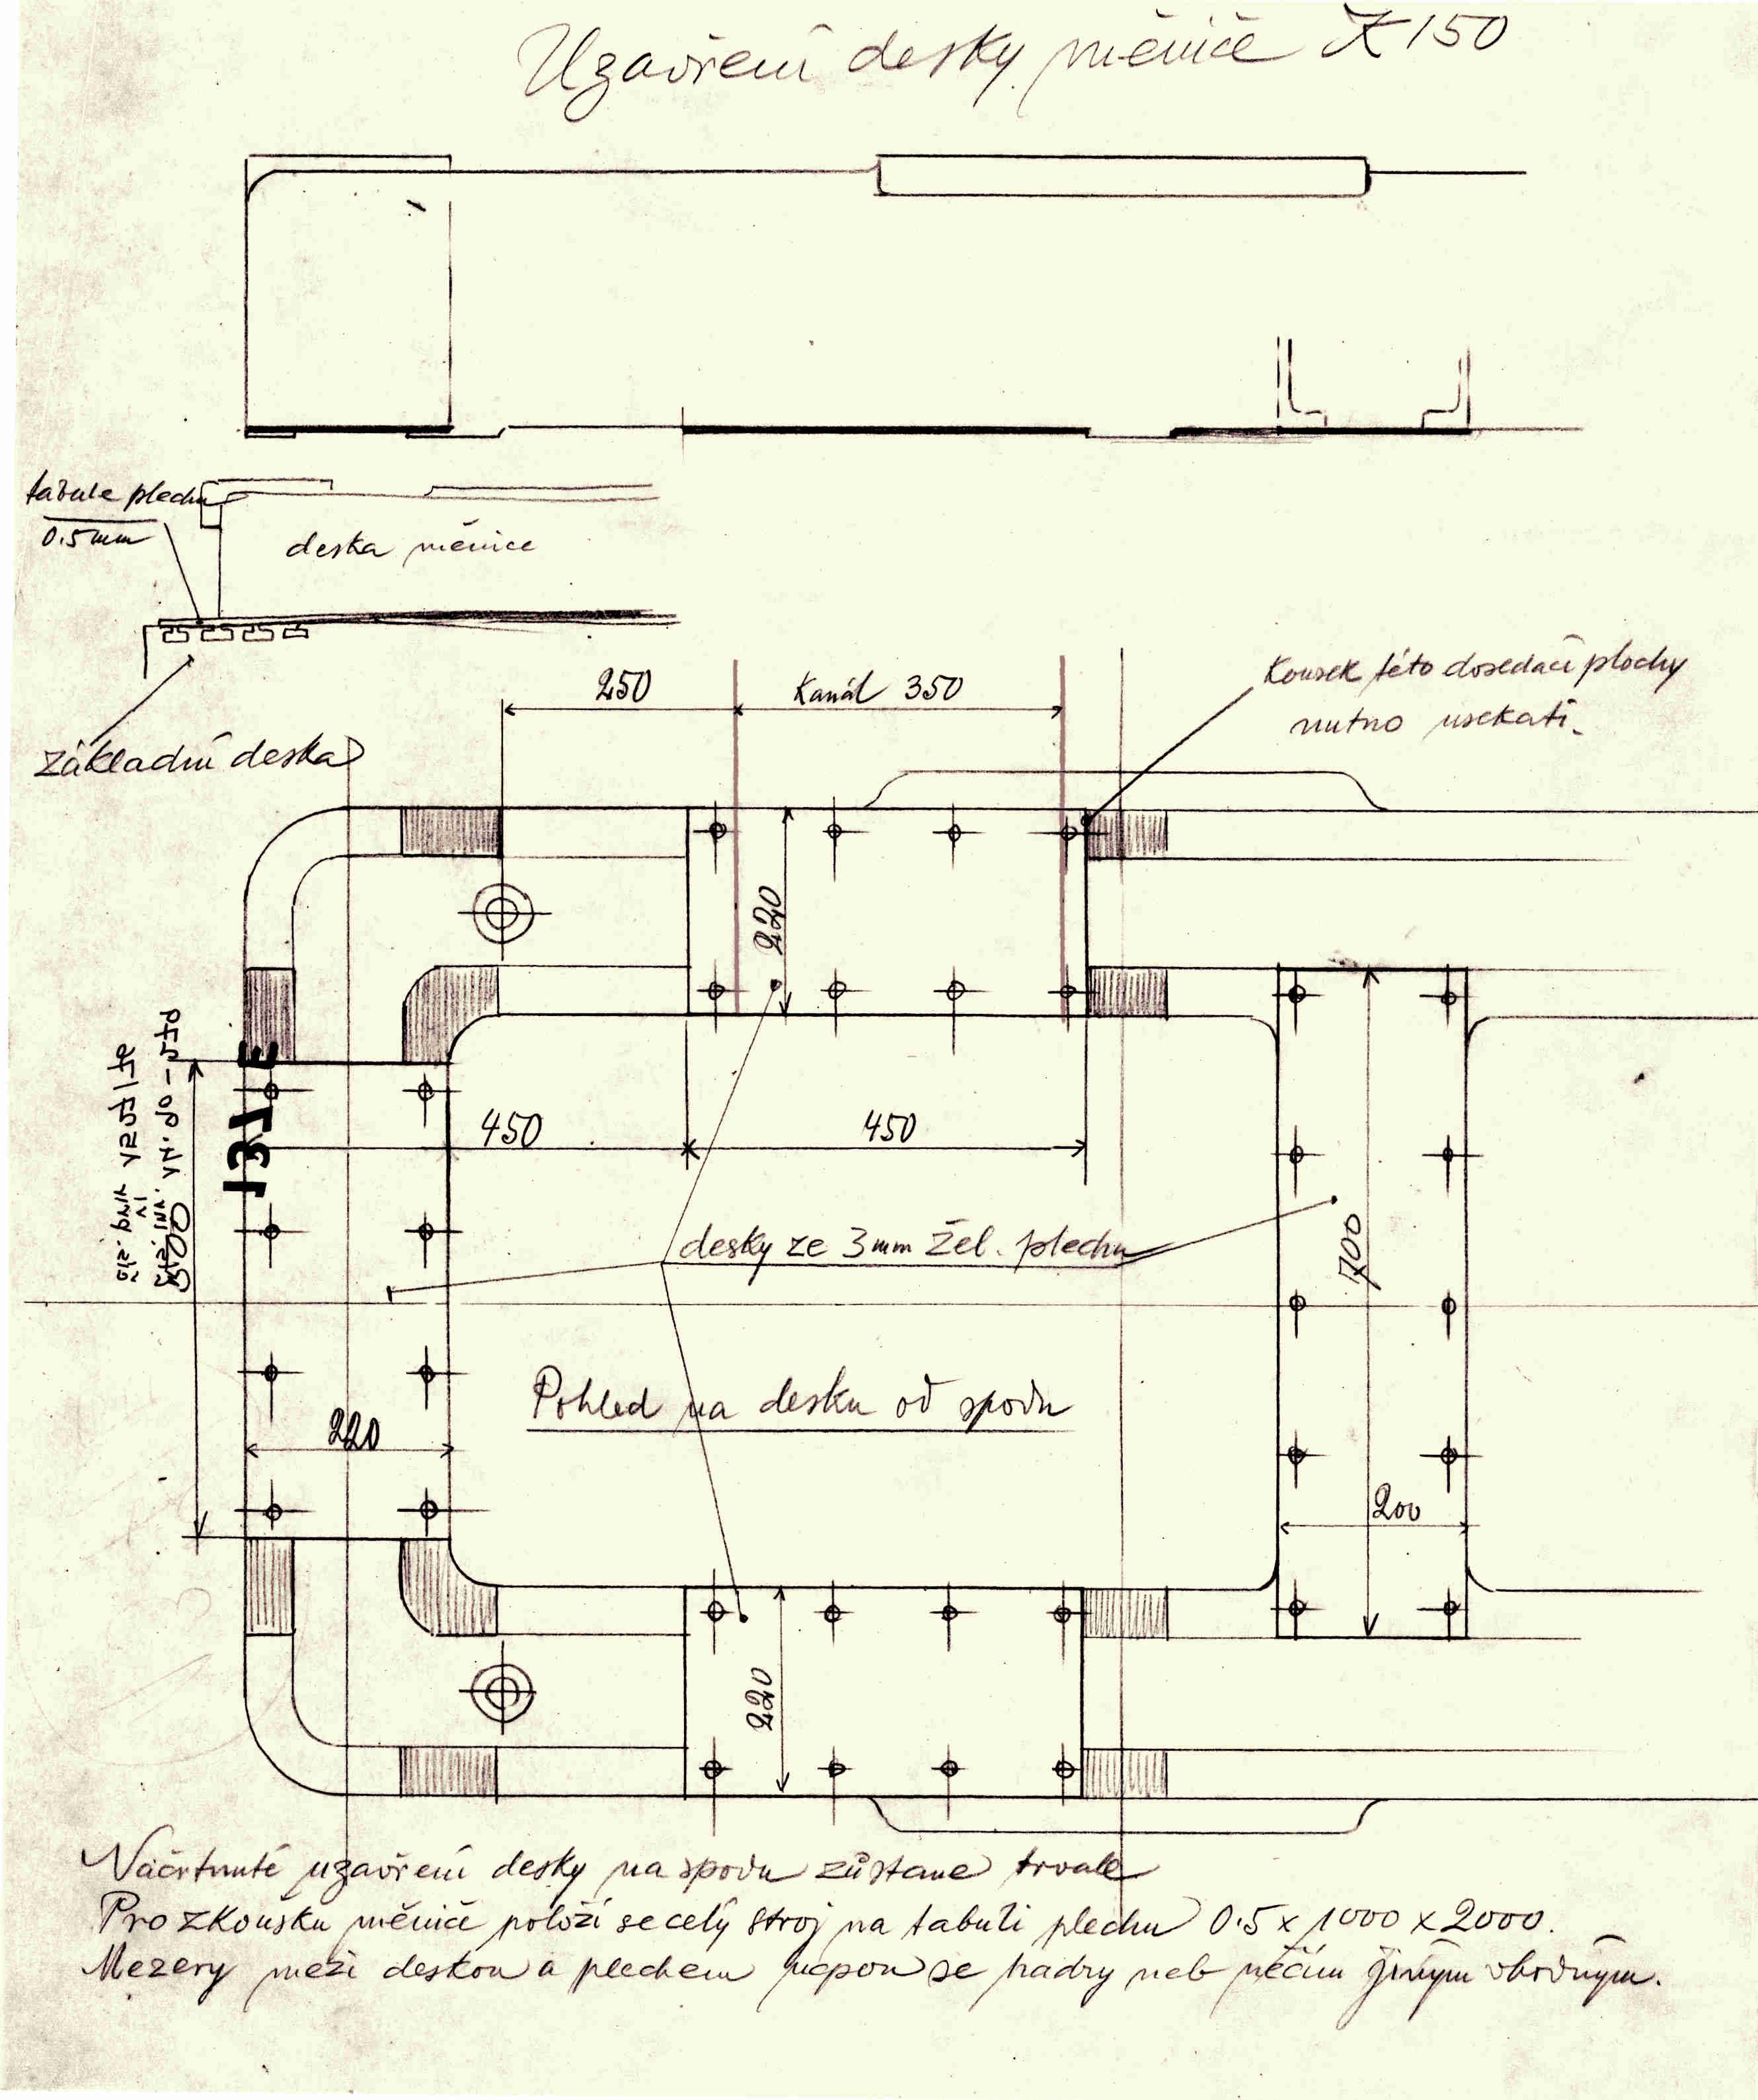 Uzavření desky měniče Ž 150
tabule plechu
0.5 mm
deska měniče
základní deska
250
Kanál 350
Kousek této dosedací plochy
nutno usekati.
220
450
450
131E
500
desky ze 3 mm žel. plechu
700
Pohled na desku od spodu
220
200
220
Náčrtnuté uzavření desky na spodu zůstane trvale
Pro zkoušku měniče položí se celý stroj na tabuli plechu 0.5 x 1000 x 2000.
Mezery mezi deskou a plechem ucpou se hadry neb něčím jiným vhodným.